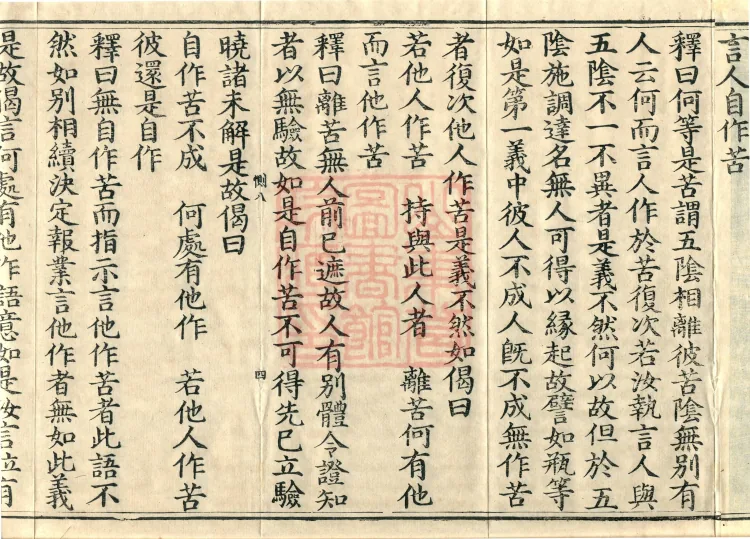 言人自作苦
釋曰何等是苦謂五陰相離彼苦陰無別有
人云何而言人作於苦復次若汝執言人與
五陰不一不異者是義不然何以故但於五
陰施調達名無人可得以緣起故譬如瓶等
如是第一義中彼人不成人既不成無作苦
者復次他人作苦是義不然如偈曰
若他人作苦 持與此人者 離苦何有他
而言他作苦
釋曰離苦無人前已遮故人有別體令證知
者以無驗故如是自作苦不可得先已立驗
惻八 四
曉諸未解是故偈曰
自作苦不成 何處有他作 若他人作苦
彼還是自作
釋曰無自作苦而指示言他作苦者此語不
然如別相續決定報業言他作者無如此義
是故偈言何處有他作語意如是汝言立有